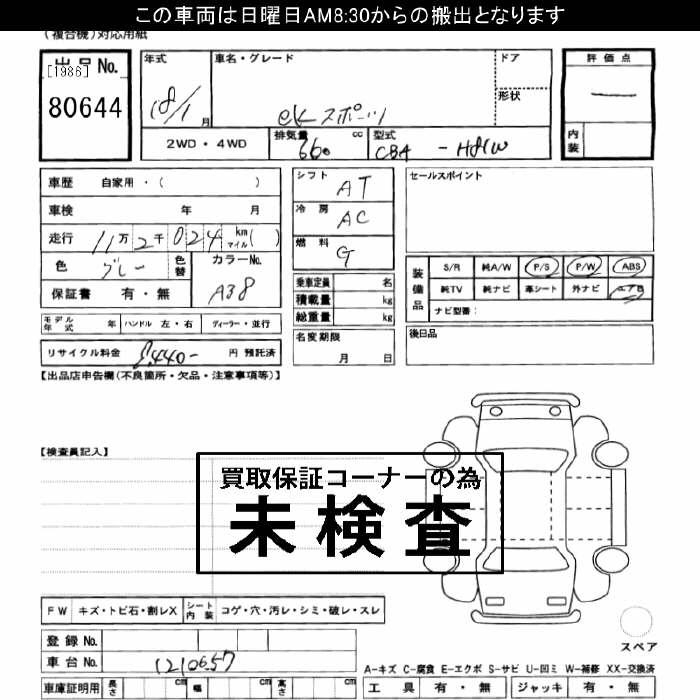 この車両は日曜日AM8:30からの搬出となります
(複合機)対応用紙
出品No.
[1986]
80644
年式
18/1月
車名・グレード
ekスポーツ
ドア
形状
2WD・4WD
排気量 660 cc
型式 CBA-H81W
評価点
—
内装
車歴 自家用・( )
車検 年 月
走行 11万2千024 km マイル( )
色 グレー 色替
カラーNo. A38
保証書 有・無
シフト AT
冷房 AC
燃料 G
乗車定員 名
積載量 kg
総重量 kg
セールスポイント
装備品
S/R 純A/W P/S P/W ABS
純TV 純ナビ 革シート 外ナビ
ナビ型番:
モデル年式 年 ハンドル 左・右 ディーラー・並行
名変期限 月 日
後日品
リサイクル料金 8,440- 円 預託済
【出品店申告欄(不良箇所・欠品・注意事項等)】
【検査員記入】
買取保証コーナーの為
未検査
FW キズ・トビ石・割レX シート内装 コゲ・穴・汚レ・シミ・破レ・スレ
登録No.
車台No. 1210657
スペア
A-キズ C-腐食 E-エクボ S-サビ U-凹ミ W-補修 XX-交換済
車庫証明用 長さ cm 幅 cm 高さ cm
工具 有・無 ジャッキ 有・無